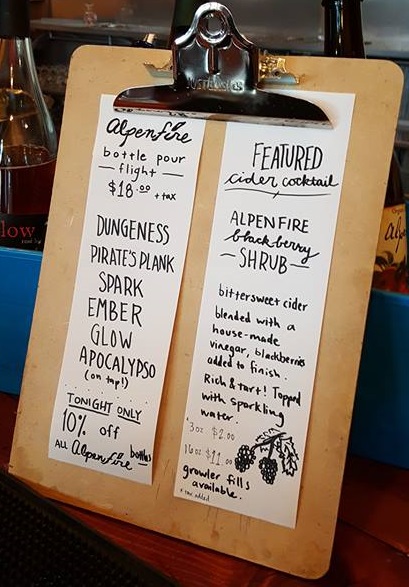 Alpenfire
bottle pour
— flight —
$18.00 + tax
DUNGENESS
PIRATE'S PLANK
SPARK
EMBER
GLOW
APOCALYPSO
(on tap!)
TONIGHT ONLY
10% off
ALL Alpenfire bottles
FEATURED
cider cocktail
ALPENFIRE
blackberry
— SHRUB —
bittersweet cider
blended with a
house-made
vinegar, blackberries
added to finish.
Rich & tart! Topped
with sparkling
water.
*3oz $2.00
16oz $11.00
growler fills
available.
* tax added
low